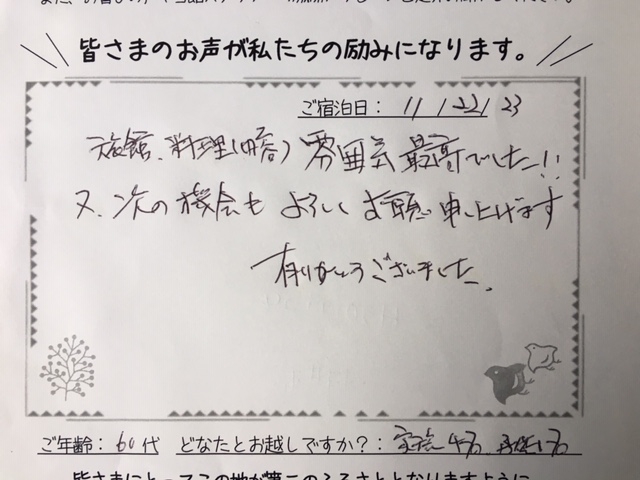 皆さまのお声が私たちの励みになります。
ご宿泊日： 11 / 22/ 23
旅館、料理(内容) 雰囲気 最高でした!!
又、次の機会も よろしく お願い申し上げます
有りがとうございました。
ご年齢：60代 どなたとお越しですか？：
皆さまにとってこの地が第二のふるさととなりますように